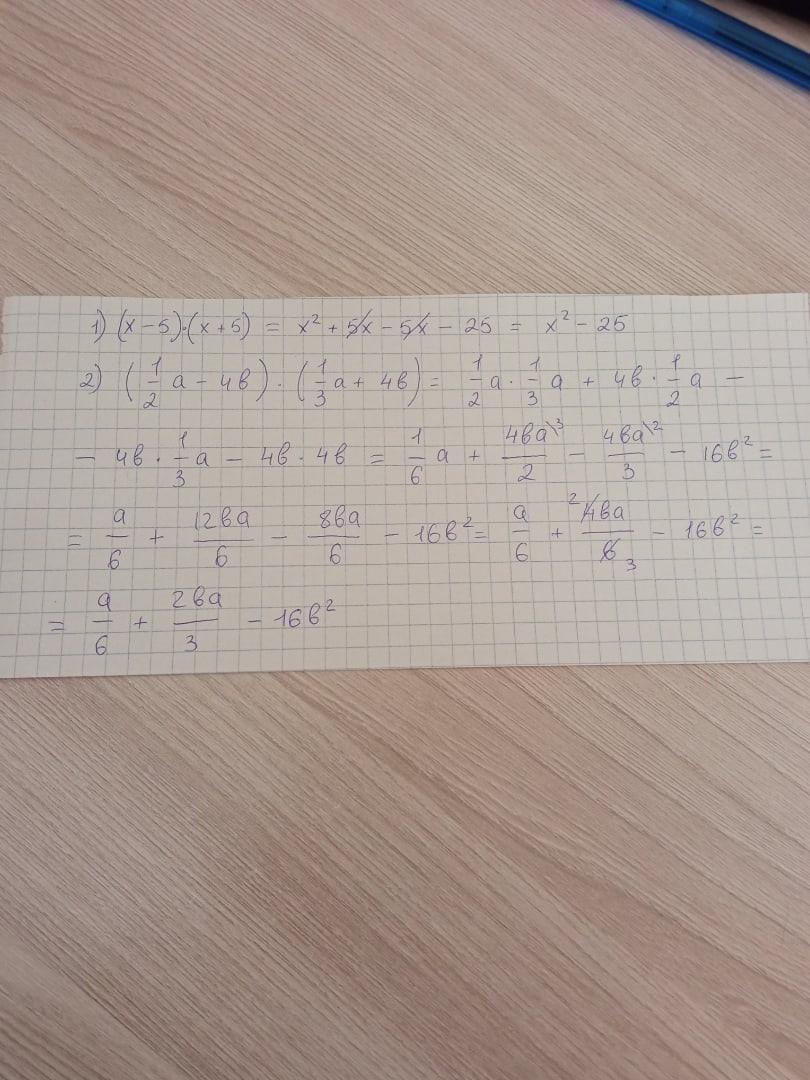 1) (x-5)·(x+5) = x² + 5x - 5x - 25 = x² - 25
2) (1/2 a - 4в) · (1/3 a + 4в) = 1/2 a · 1/3 a + 4в · 1/2 a -
- 4в · 1/3 a - 4в · 4в = 1/6 a + 4вa\3/2 - 4вa\2/3 - 16в² =
= a/6 + 12вa/6 - 8вa/6 - 16в² = a/6 + ²4вa/6₃ - 16в² =
= a/6 + 2вa/3 - 16в²